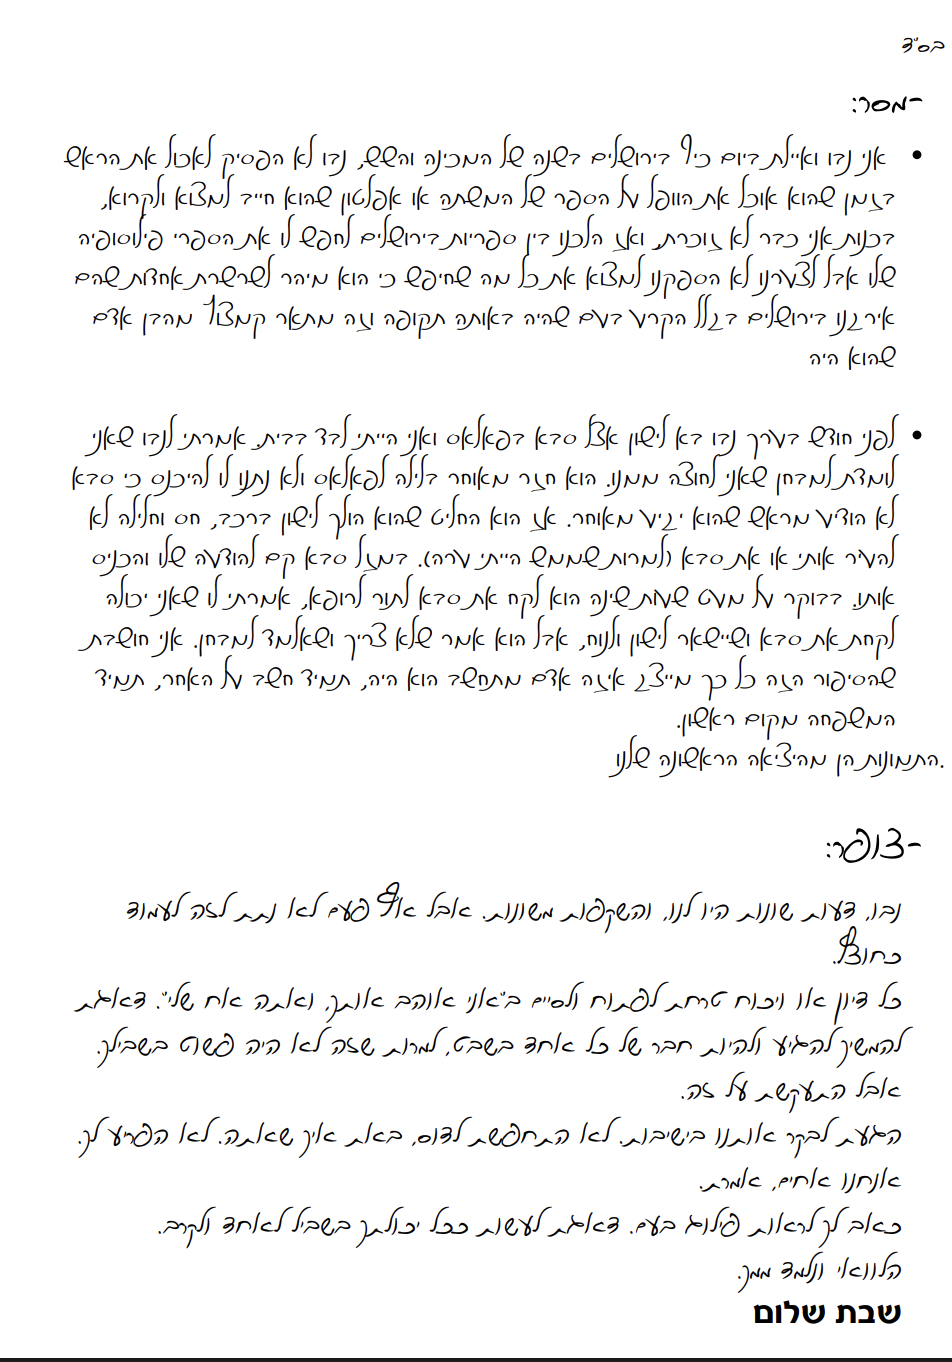 בס"ד
-מסר:
• אני נבו ואיילת ביום כיף בירושלים בשנה של המכינה והשש, נבו לא הפסיק לאכול את הראש
בזמן שהוא אוכל את הוופל על הספר של המשתה או אפלטון שהוא חייב למצוא ולקרוא,
בכנות אני כבר לא זוכרת. ואז הלכנו בין ספריות בירושלים לחפש לו את הספרי פילוסופיה
שלו אבל לצערנו לא הספקנו למצוא את כל מה שחיפש כי הוא מיהר לשרשרת אחדות שהם
אירגנו בירושלים בגלל הקרע בעם שהיה באותה תקופה וזה מתאר קמצוץ מהבן אדם
שהוא היה
• לפני חודש בערך נבו בא לישון אצל סבא בפאלאס ואני הייתי לבד בבית. אמרתי לנבו שאני
לומדת למבחן שאני לחוצה ממנו. הוא חזר מאוחר בלילה לפאלאס ולא נתנו לו להיכנס כי סבא
לא הודיע מראש שהוא יגיע מאוחר. אז הוא החליט שהוא הולך לישון ברכב, חס וחלילה לא
להעיר אותי או את סבא (למרות שממש הייתי ערה). במזל סבא קם להודעה שלו והכניס
אותו. בבוקר על מעט שעות שינה הוא לקח את סבא לתור לרופא, אמרתי לו שאני יכולה
לקחת את סבא ושיישאר לישון ולנוח, אבל הוא אמר שלא צריך ושאלמד למבחן. אני חושבת
שהסיפור הזה כל כך מייצג איזה אדם מתחשב הוא היה, תמיד חשב על האחר, תמיד
המשפחה מקום ראשון.
.התמונות הן מהיציאה הראשונה שלנו
-צופר:
נבו, דעות שונות היו לנו, והשקפות משונות. אבל אף פעם לא נתת לזה לעמוד
כחוצץ.
כל דיון או ויכוח טרחת לפתוח ולסיים ב"אני אוהב אותך, ואתה אח שלי". דאגת
להמשיך להגיע ולהיות חבר של כל אחד בשבט, למרות שזה לא היה פשוט בשבילך.
אבל התעקשת על זה.
הגעת לבקר אותנו בישיבות. לא התחפשת לדוס, באת איך שאתה. לא הפריע לך.
אנחנו אחים, אמרת.
כאב לך לראות פילוג בעם. דאגת לעשות ככל יכולתך בשביל לאחד ולקרב.
הלוואי ונלמד ממך.
שבת שלום